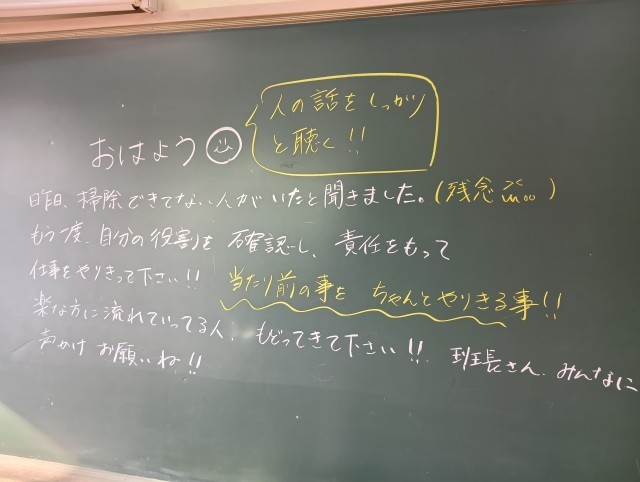 人の話をしっかり
と聴く!!
おはよう
昨日、掃除できてない人がいたと聞きました。(残念)
もう一度、自分の役割を確認し、責任をもって
仕事をやりきって下さい!! 当たり前の事を ちゃんとやりきる事!!
楽な方に流れていってる人、もどってきて下さい!! 班長さん、みんなに
声かけお願いね!!